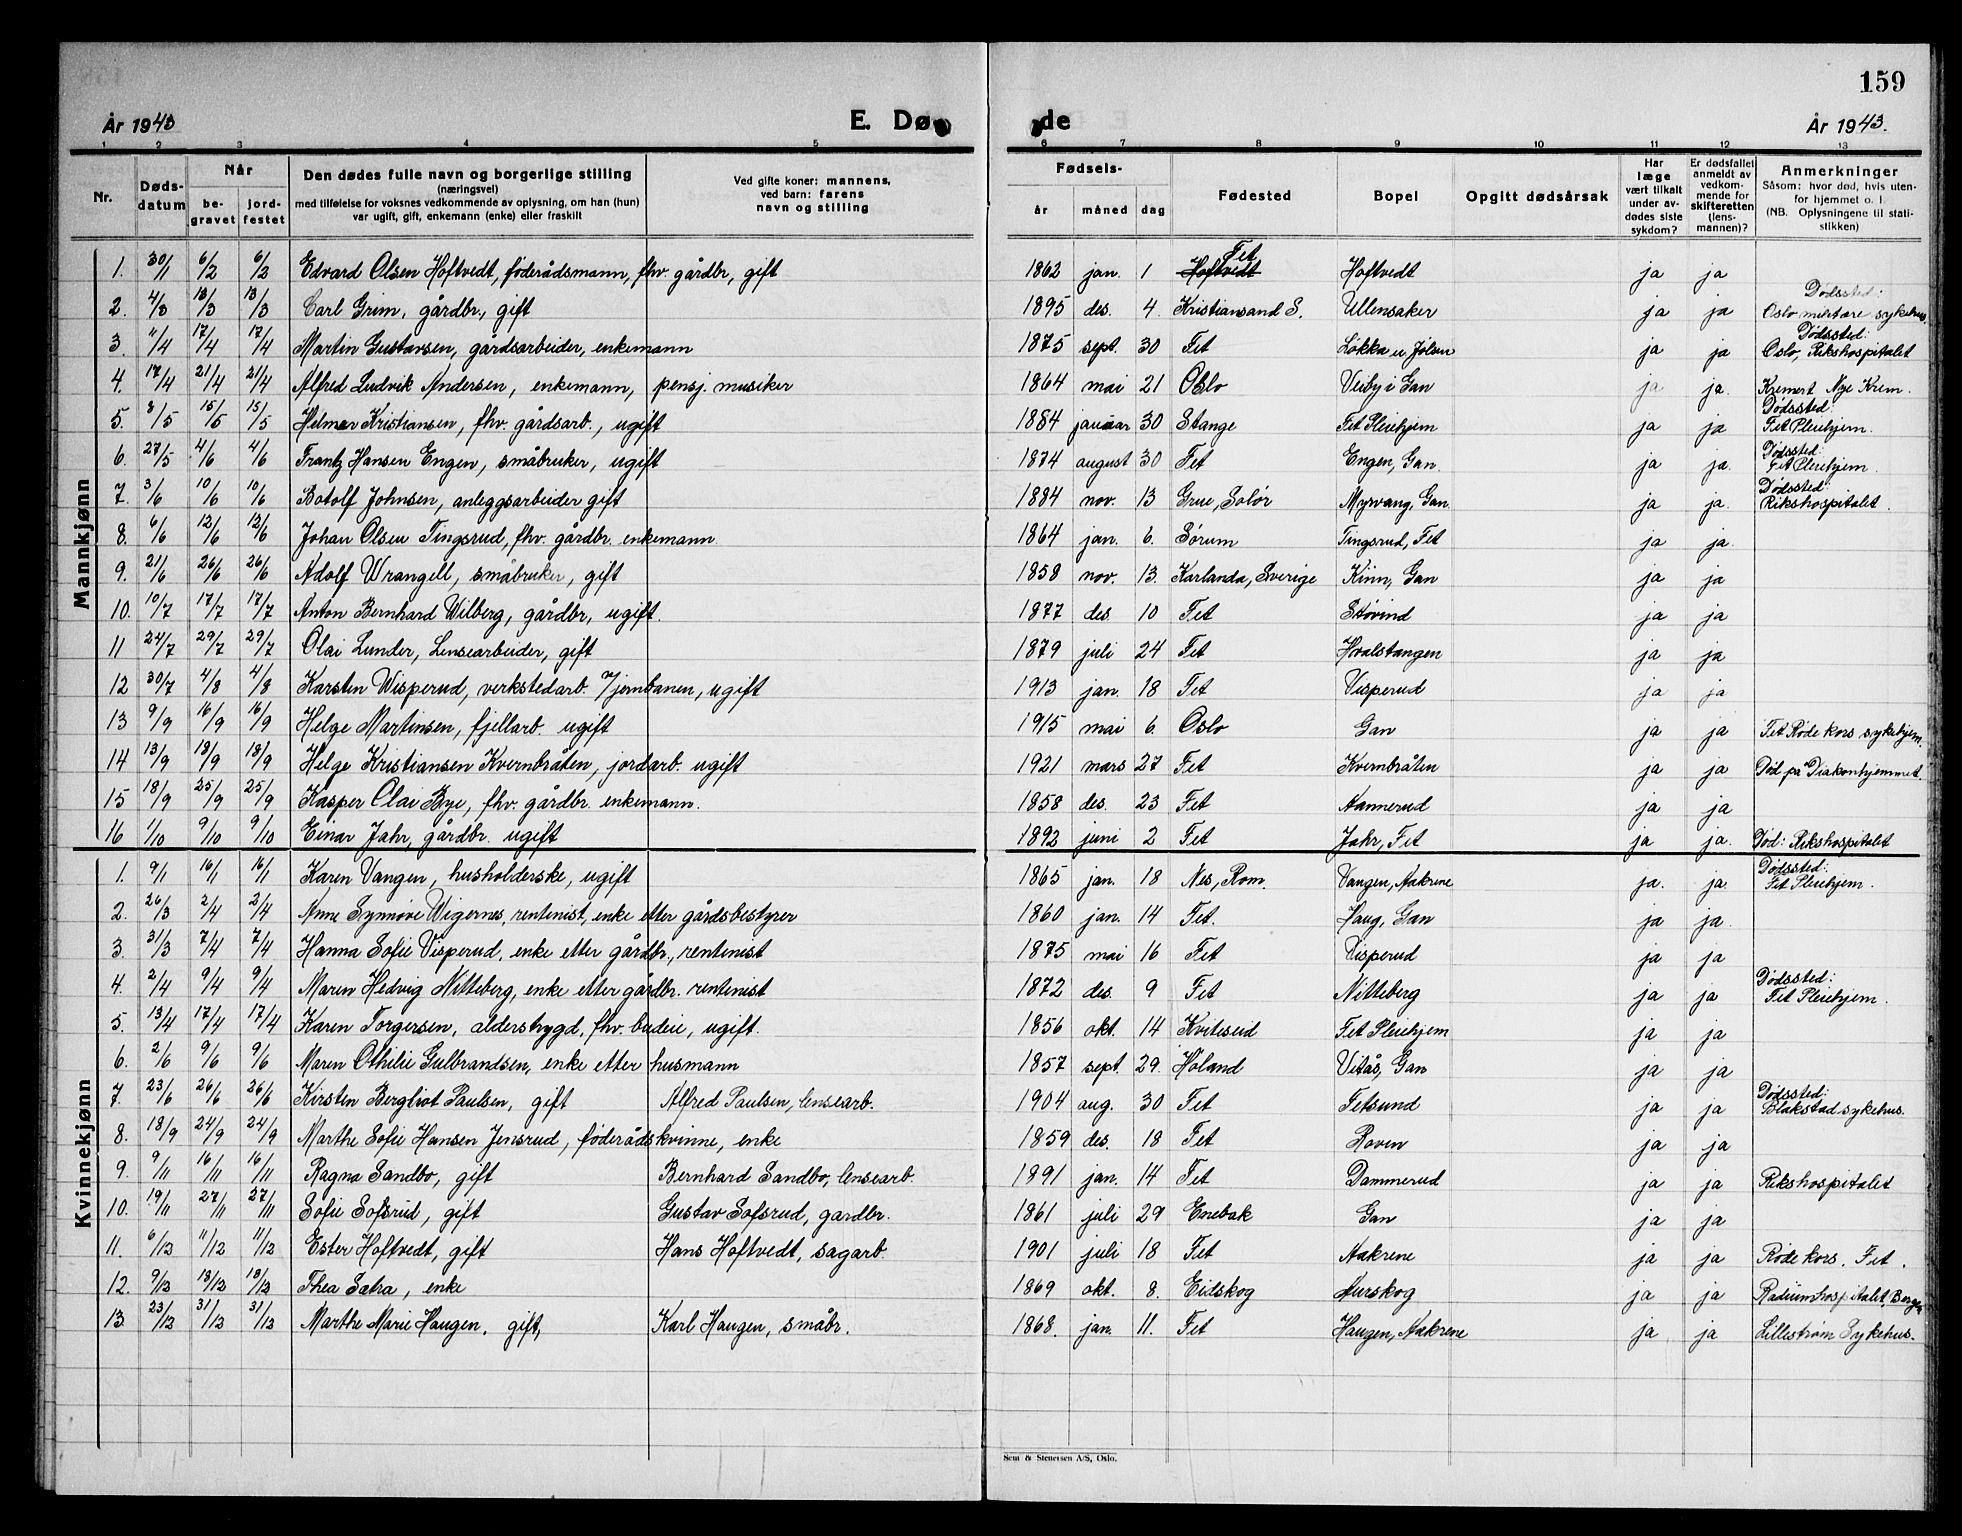 159
År 1943
E. Døde
År 1943.
1 2 3 4 5 6 7 8 9 10 11 12 13
Nr.
Døds-
datum
Når
be-
gravet
jord-
festet
Den dødes fulle navn og borgerlige stilling
(næringsvei)
med tilføielse for voksnes vedkommende av oplysning, om han (hun)
var ugift, gift, enkemann (enke) eller fraskilt
Ved gifte koner: mannens,
ved barn: farens
navn og stilling
Fødsels-
år måned dag
Fødested
Bopel
Opgitt dødsårsak
Har
læge
vært tilkalt
under av-
dødes siste
sykdom?
Er dødsfallet
anmeldt av
vedkom-
mende for
skifteretten
(lens-
mannen)?
Anmerkninger
Såsom: hvor død, hvis uten-
for hjemmet o. l.
(NB. Oplysningene til stati-
stikken)
Mannkjønn
1. 30/1 6/2 6/2 Edvard Olsen Hoftvedt, føderådsmann, fhv. gårdbr., gift 1862 jan. 1 Hoftvedt Fet Hoftvedt ja ja
2. 4/3 13/3 13/3 Carl Grim, gårdbr., gift 1895 des. 4. Kristiansand S. Ullensaker ja ja Dødssted: Oslo militære sykehus
3. 11/4 17/4 17/4 Martin Gustavsen, gårdsarbeider, enkemann 1875 sept. 30 Fet Løkka u Jølsen ja ja Dødssted: Oslo, Rikshospitalet
4. 17/4 21/4 21/4 Alfred Ludvik Andersen, enkemann, pensj. musiker 1864 mai 21 Oslo Veiby i Gan ja ja. Kremert Nye Krem.
5. 8/5 15/5 15/5 Helmer Kristiansen, fhv. gårdsarb., ugift 1884 januar 30 Stange Fet Pleiehjem ja ja Dødssted: Fet Pleiehjem.
6. 27/5 4/6 4/6 Frantz Hansen Engen, småbruker, ugift 1874 august 30 Fet Engen, Gan. ja ja. Dødssted: Fet Pleiehjem.
7. 3/6 10/6 10/6 Botolf Johnsen, anleggsarbeider gift 1884 nov. 13 Grue, Solør Myrvang, Gan ja ja. Dødssted: Rikshospitalet.
8. 6/6 12/6 12/6 Johan Olsen Tingsrud, fhv. gårdbr. enkemann. 1864 jan. 6. Sørum Tingsrud, Fet ja ja.
9. 21/6 26/6 26/6 Adolf Wrangell, småbruker, gift 1858 nov. 13. Karlanda, Sverige Kinn, Gan ja ja
10. 10/7 17/7 17/7 Anton Bernhard Wilberg, gårdbr., ugift. 1877 des. 10 Fet Støvind ja ja
11 24/7 29/7 29/7 Olai Lunder, Lensearbeider, gift 1879 juli 24 Fet Hvalstangen ja ja
12 30/7 4/8 4/8 Karsten Wisperud, verkstedarb. v/jernbanen, ugift 1913 jan. 18 Fet Visperud ja ja
13 9/9 16/9 16/9 Helge Martinsen, fjellarb. ugift 1915 mai 6. Oslo Gan ja ja Fet Røde kors sykehjem.
14 13/9 18/9 18/9 Helge Kristiansen Kvernbråten, jordarb. ugift 1921 mars 27 Fet Kvernbråten ja ja Død på Diakonhjemmet.
15 18/9 25/9 25/9 Kasper Olai Bye, fhv. gårdbr. enkemann. 1858 des. 23 Fet Nannerud ja ja
16 1/10 9/10 9/10 Einar Jahr, gårdbr. ugift 1892 juni 2 Fet Jahr, Fet ja ja. Død: Rikshospitalet
Kvinnekjønn
1. 9/1 16/1 16/1 Karen Vangen, husholderske, ugift 1865 jan. 18 Nes, Rom. Vangen, Aakrene ja. ja. Dødssted: Fet Pleiehjem.
2. 26/3 2/4 2/4 Anne Synnøve Wigernes, rentenist, enke etter gårdsbestyrer 1860 jan. 14 Fet. Haug, Gan ja ja.
3. 31/3 7/4 7/4 Hanna Sofie Visperud, enke etter gårdbr., rentenist 1875 mai 16 Fet Visperud ja ja
4. 2/4 9/4 9/4 Maren Hedvig Nitteberg, enke etter gårdbr. rentenist 1872 des. 9 Fet Nitteberg ja ja Dødssted: Fet Pleiehjem.
5. 13/4 17/4 17/4 Karen Torgersen, alderstrygd, fhv. budeie, ugift. 1856 okt. 14 Kviteseid Fet Pleiehjem ja ja
6. 2/6 9/6 9/6 Maren Othilie Gulbrandsen, enke etter husmann 1857 sept. 29. Høland Vitås, Gan ja ja
7. 23/6 26/6 26/6 Kirsten Bergliot Paulsen, gift Alfred Paulsen, lensearb. 1904 aug. 30 Fet Fetsund ja ja Dødssted: Blakstad sykehus.
8. 18/9 24/9 24/9 Marthe Sofie Hansen Jensrud, føderådskvinne, enke 1859 des. 18 Fet Roven ja ja
9. 9/11 16/11 16/11 Ragna Sandbo, gift Bernhard Sandbo, lensearb. 1891 jan. 14 Fet Dammerud ja ja Rikshospitalet
10. 19/11 27/11 27/11 Sofie Sofsrud, gift Gustav Sofsrud, gardbr. 1861 juli 29 Enebak Gan ja ja
11. 6/12 11/12 11/12 Ester Hoftvedt, gift Hans Hoftvedt, sagarb. 1901 juli 18 Fet Aakrene ja ja Røde kors. Fet.
12. 9/12 13/12 13/12 Thea Sætra, enke 1869 okt. 8. Eidskog Aurskog ja ja Radiumhospitalet,
13. 23/12 31/12 31/12 Marthe Marie Haugen, gift, Karl Haugen, småbr. 1868. jan. 11. Fet Haugen, Aakrene ja ja Lillestrøm Sykehus.
Sem & Stenersen A/S, Oslo.